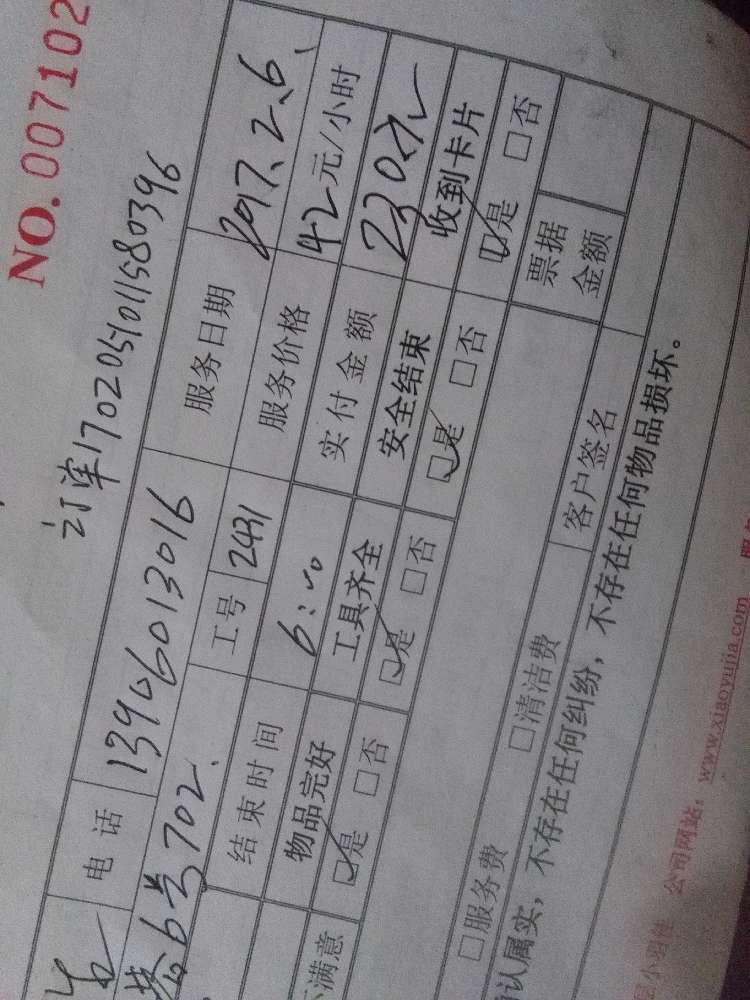 NO. 007102
订单170205101158 0396
电话 13906013016 服务日期 2017.2.6.
巷6号702. 工号 2431 服务价格 42元/小时
结束时间 6:00 实付金额 230元
物品完好 工具齐全 安全结束 收到卡片
不满意 是 □否 是 □否 是 □否 是 □否
票据金额
□服务费 □清洁费 客户签名
认属实,不存在任何纠纷,不存在任何物品损坏。
公司网站:www.xiaoyujia.com